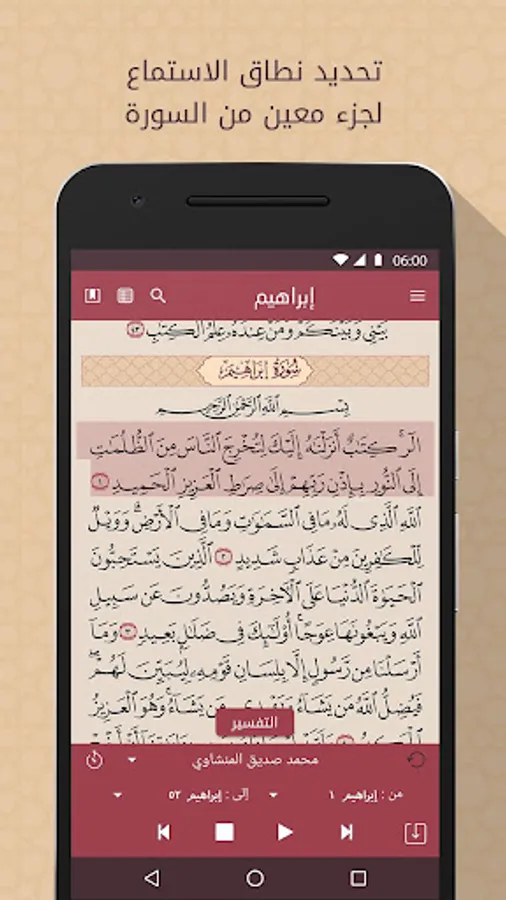 تحديد نطاق الاستماع
لجزء معين من السورة
06:00
إبراهيم
بَيْنِي وَبَيْنَكُمْ وَمَنْ عِندَهُۥ عِلْمُ ٱلْكِتَٰبِ ٤٣
سُورَةُ إِبْرَاهِيمَ
بِسْمِ ٱللَّهِ ٱلرَّحْمَٰنِ ٱلرَّحِيمِ
الٓر ۚ كِتَٰبٌ أَنزَلْنَٰهُ إِلَيْكَ لِتُخْرِجَ ٱلنَّاسَ مِنَ ٱلظُّلُمَٰتِ
إِلَى ٱلنُّورِ بِإِذْنِ رَبِّهِمْ إِلَىٰ صِرَٰطِ ٱلْعَزِيزِ ٱلْحَمِيدِ ١
ٱللَّهِ ٱلَّذِى لَهُۥ مَا فِى ٱلسَّمَٰوَٰتِ وَمَا فِى ٱلْأَرْضِ ۗ وَوَيْلٌ
لِّلْكَٰفِرِينَ مِنْ عَذَابٍ شَدِيدٍ ٢ ٱلَّذِينَ يَسْتَحِبُّونَ
ٱلْحَيَوٰةَ ٱلدُّنْيَا عَلَى ٱلْءَاخِرَةِ وَيَصُدُّونَ عَن سَبِيلِ
ٱللَّهِ وَيَبْغُونَهَا عِوَجًا ۚ أُو۟لَٰٓئِكَ فِى ضَلَٰلٍۭ بَعِيدٍ ٣ وَمَآ
أَرْسَلْنَا مِن رَّسُولٍ إِلَّا بِلِسَانِ قَوْمِهِۦ لِيُبَيِّنَ لَهُمْ ۖ
فَيُضِلُّ ٱللَّهُ مَن يَشَآءُ وَيَهْدِى مَن يَشَآءُ ۚ وَهُوَ ٱلْعَزِيزُ
التفسير
محمد صديق المنشاوي
من : إبراهيم ١ إلى : إبراهيم ٥٢